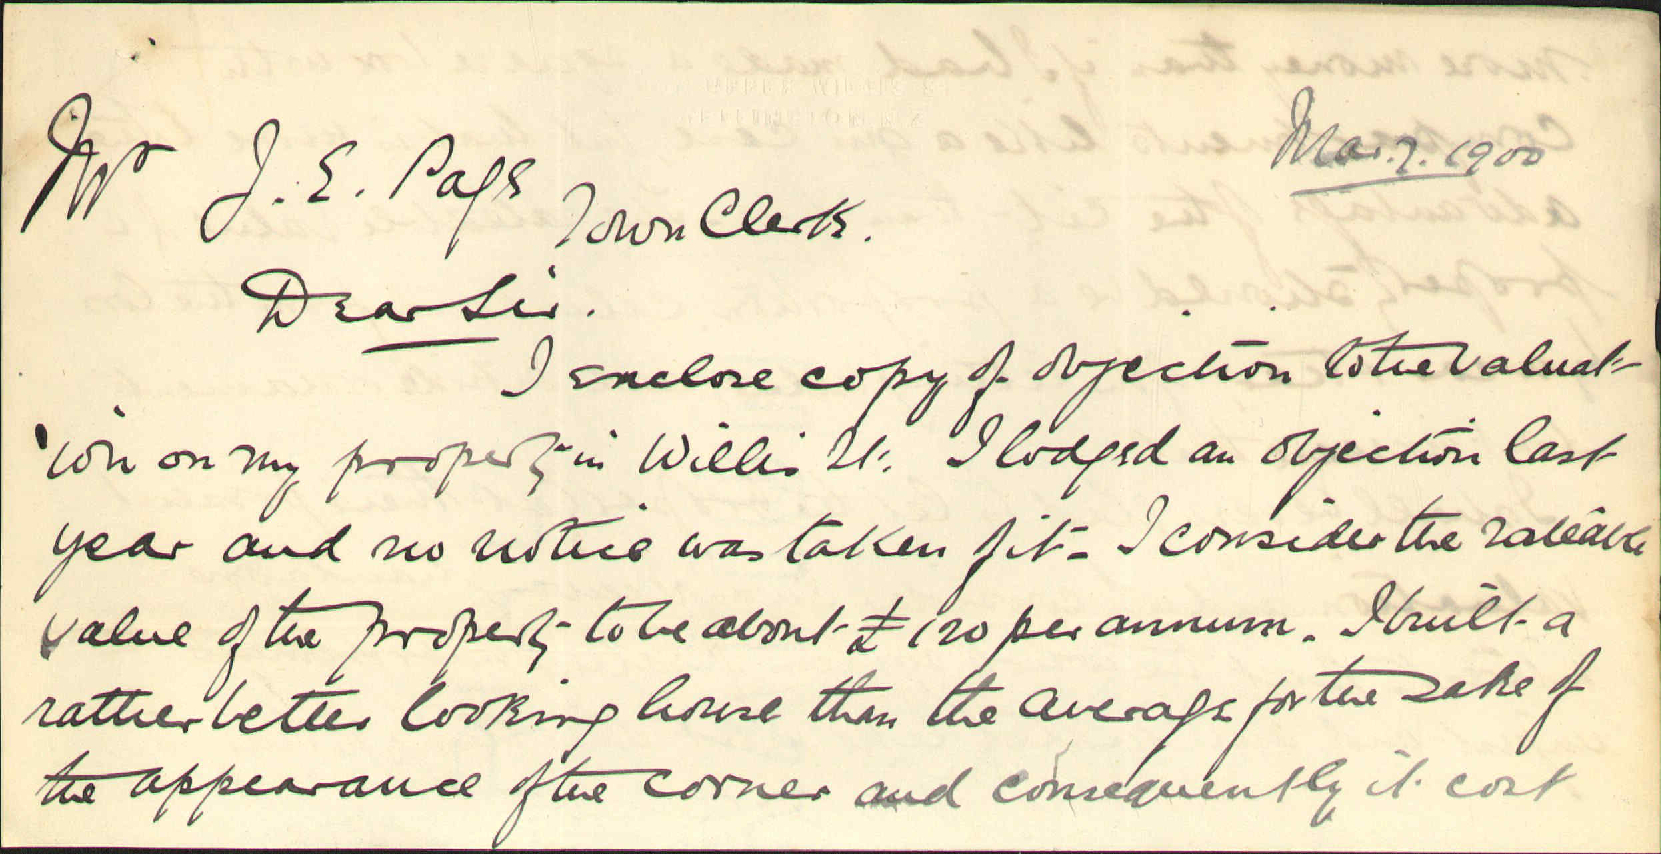 Mar. 7. 1900
Mr J. E. Page
Town Clerk.
Dear Sir.
I enclose copy of objection to the valuat-
ion on my property in Willis St. I lodged an objection last
year and no notice was taken of it - I consider the rateable
value of the property to be about £120 per annum. I built a
rather better looking house than the average for the sake of
the appearance of the corner and consequently it cost